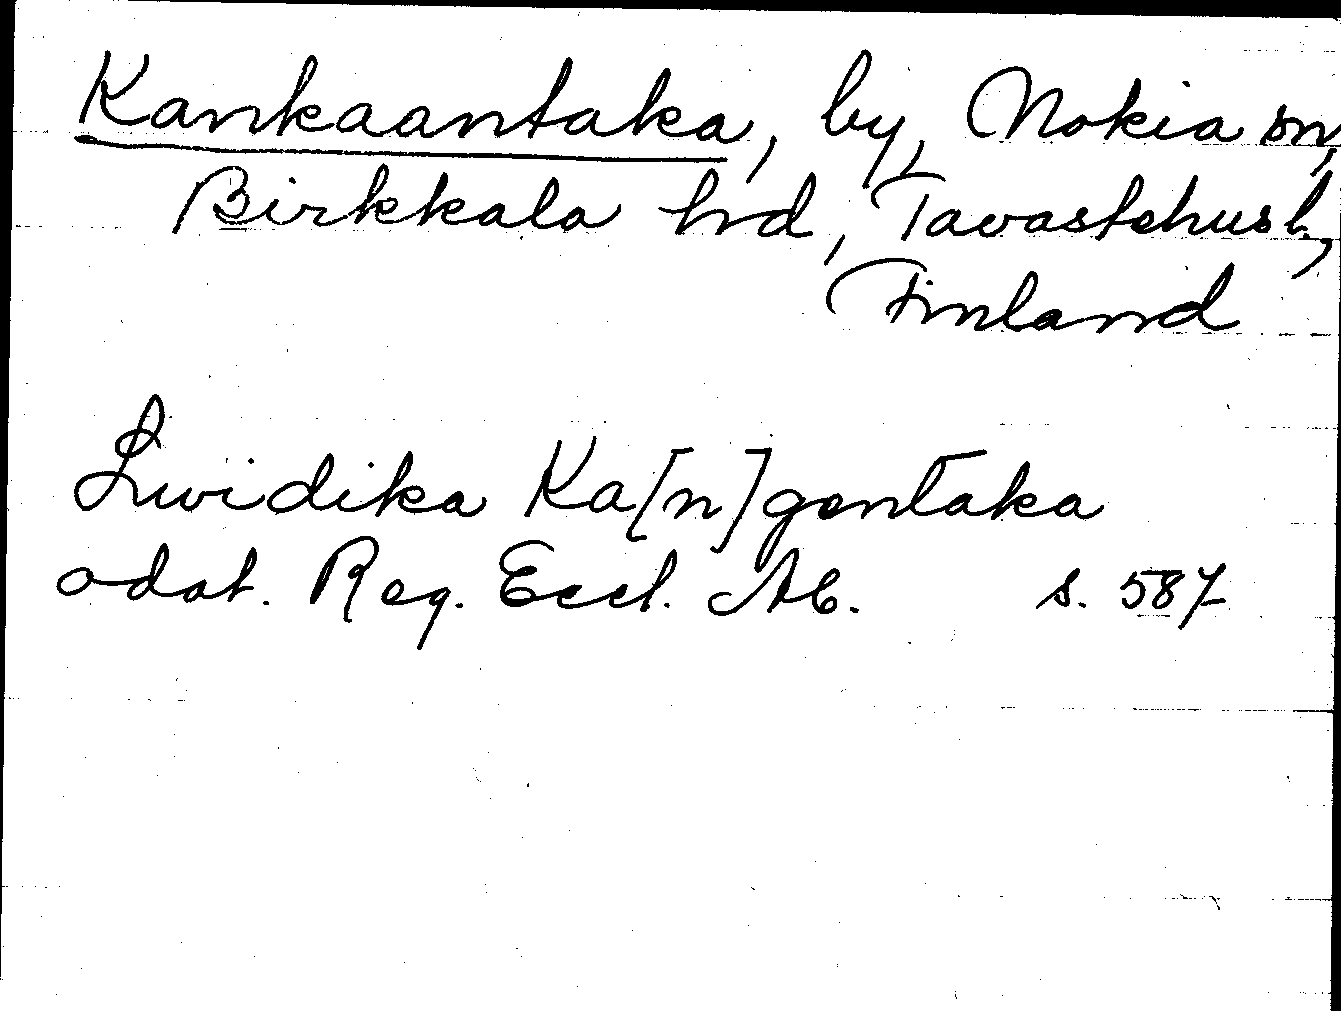 Kankaantaka, by, Nokia sn,
Birkkala hrd, Tavastehus l.,
Finland
Lwidika Ka[n]gentaka
odat. Reg. Eccl. Ab. s. 587